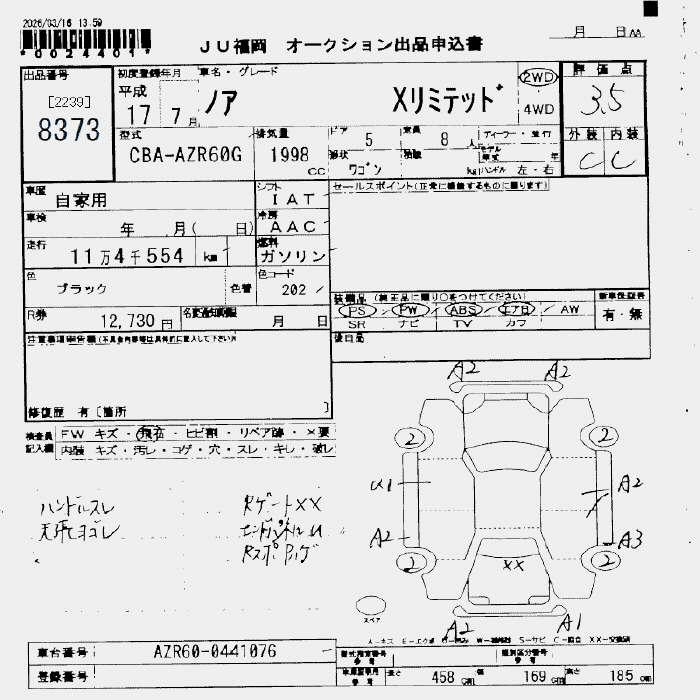 2026/03/16 13:59
*0024401*
JU福岡 オークション出品申込書
月 日
出品番号
[2239]
8373
初度登録年月
平成
17 7 月
車名・グレード
ノア Xリミテッド
2WD
4WD
評価点
3.5
外装 内装
C C
型式
CBA-AZR60G
排気量
1998 CC
ドア 5
定員 8 人
形状 ワゴン
積載 kg
ディーラー・並行
モデル年式 年
ハンドル 左・右
車歴
自家用
シフト
IAT
セールスポイント
車検
年 月( 日)
冷房
AAC
走行
11万4千554 km
燃料
ガソリン
色
ブラック
色替
色コード
202
R券
12,730 円
月 日
PS / PW / ABS / エアB / AW
SR ナビ TV カワ
新車保証書
有・無
後日品
修復歴 有 [箇所 ]
検査員記入欄
FW キズ・飛石・ヒビ割・リペア跡・X要
内装 キズ・汚レ・コゲ・穴・スレ・キレ・破レ
A2 A2
2 2
U1 A2
A2 A3
2 2
XX
A2 A1
ハンドルスレ
天張ヨゴレ
RゲートXX
スペア
車台番号
AZR60-0441076
登録番号
型式指定番号
類別区分番号
長さ 458 cm 幅 169 cm 高さ 185 cm